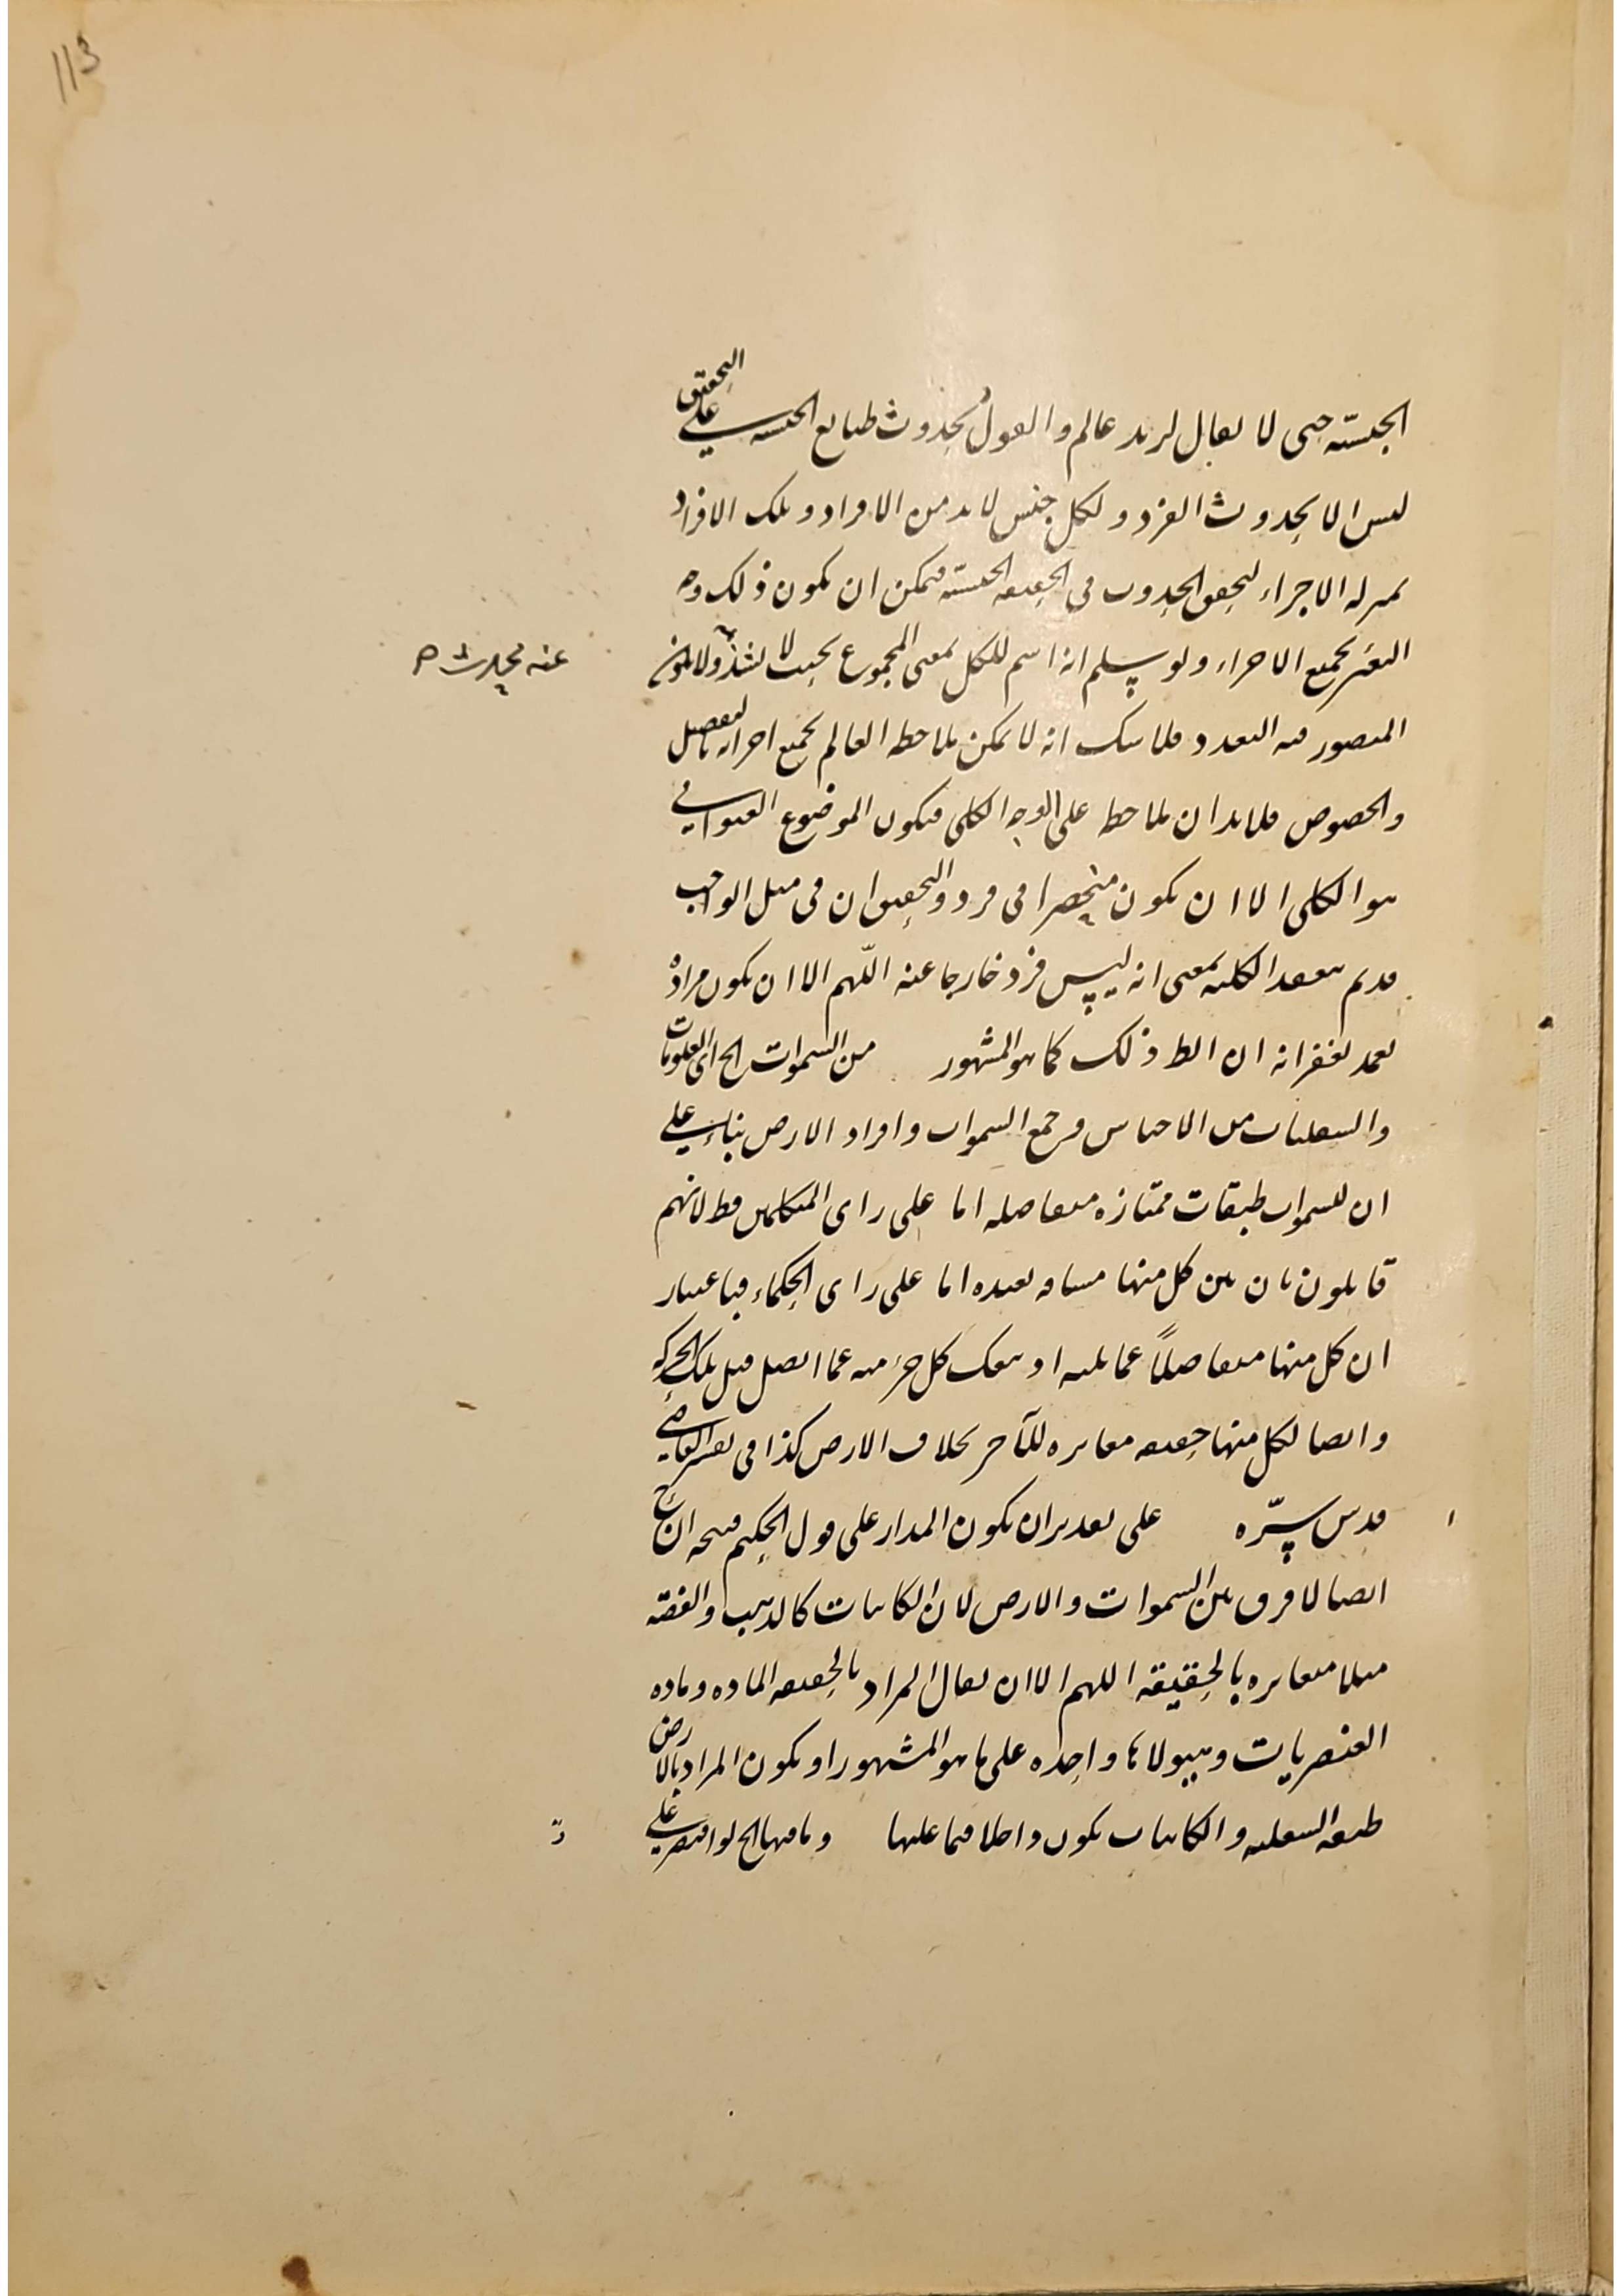 113
الجنسية حتى لا يقال لزيد عالم والقول بحدوث طبايع الجنسية على التحقيق
ليس الا بحدوث الفرد ولكل جنس لا بد من الافراد وتلك الافراد
بمنزلة الاجزاء لتحقق الحدوث في الحقيقة الجنسية فيمكن ان يكون ذلك وجه
بجميع الاجزاء ولو سلم انه اسم للكل بمعنى المجموع بحيث لا يشذ ولا يكون
عنه
المتصور فيه التعدد فلا شك انه لا يمكن ملاحظة العالم بجميع اجزائه بالتفصيل
والخصوص فلا بد ان يلاحظ على الوجه الكلي فيكون الموضوع العنواني
هو الكلي الا ان يكون منحصرا في فرد والتحقيق ان في مثل الواجب
قديم الكلية بمعنى انه ليس فرد خارجا عنه اللّهم الا ان يكون مراده
تغمد بغفرانه ان الظ ذلك كما هو المشهور من السموات الخ اى العلويات
والسفليات من الاجناس وجمع السموات وافراد الارض بناء على
ان للسموات طبقات ممتازه متفاصله اما على راى المتكلمين فظ لانهم
قايلون بان بين كل منها مسافه بعيده اما على راى الحكماء فباعتبار
ان كل منها متفاصلاً عما يليه او ينفك كل جزء منه عما اتصل قبل تلك الحركه
وايضا لكل منها حقيقه مغايره للآخر بخلاف الارض كذا في تفسير القاضي
قدس سرّه على تقدير ان يكون المدار على قول الحكيم ان
ايضا لا فرق بين السموات والارض لان الكاينات كالذهب والفضّه
مثلا متغايره بالحقيقة اللهم الا ان يقال المراد بالحقيقه الماده وماده
العنصريات وهيولاها واحده على ما هو المشهور او يكون المراد بالارض
طبقه السفليه والكاينات يكون داخلا فيما عليها وما فيها الخ لو اقتصر على